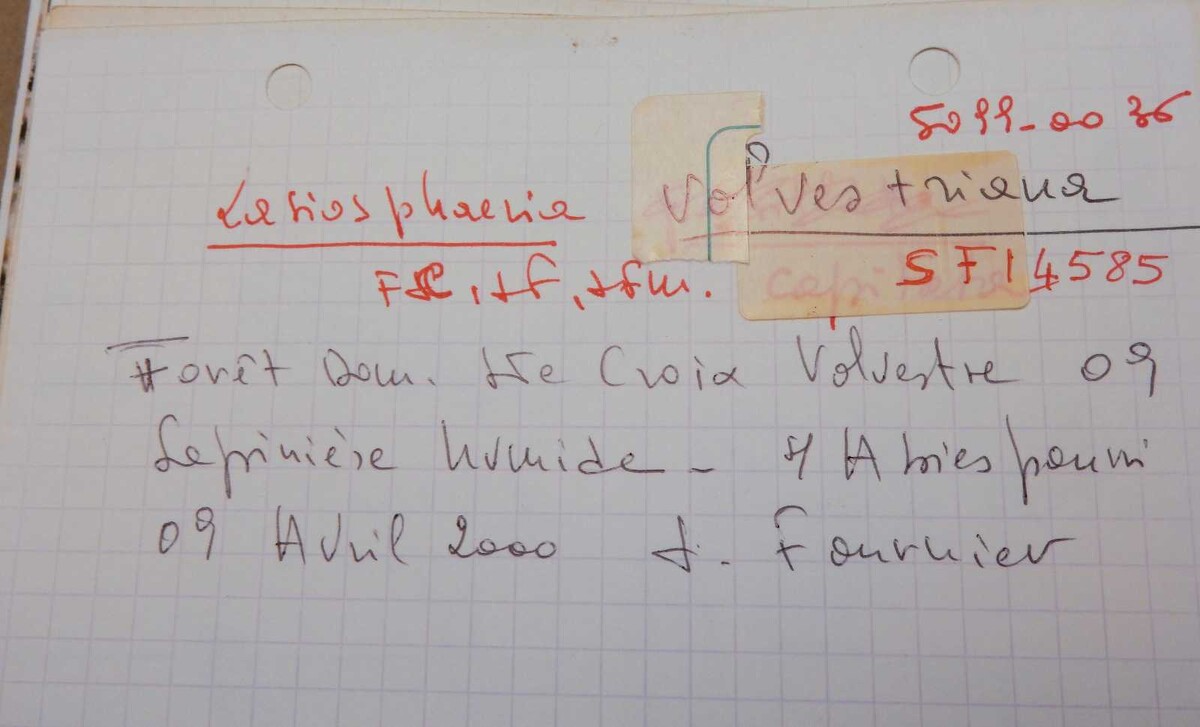 5099-00 36
Lasiosphaeria Volvestriana
SF14585
Forêt Dom. Ste Croix Volvestre 09
Sapinière humide - s/ Abies pourri
09 Avril 2000 J. Fournier